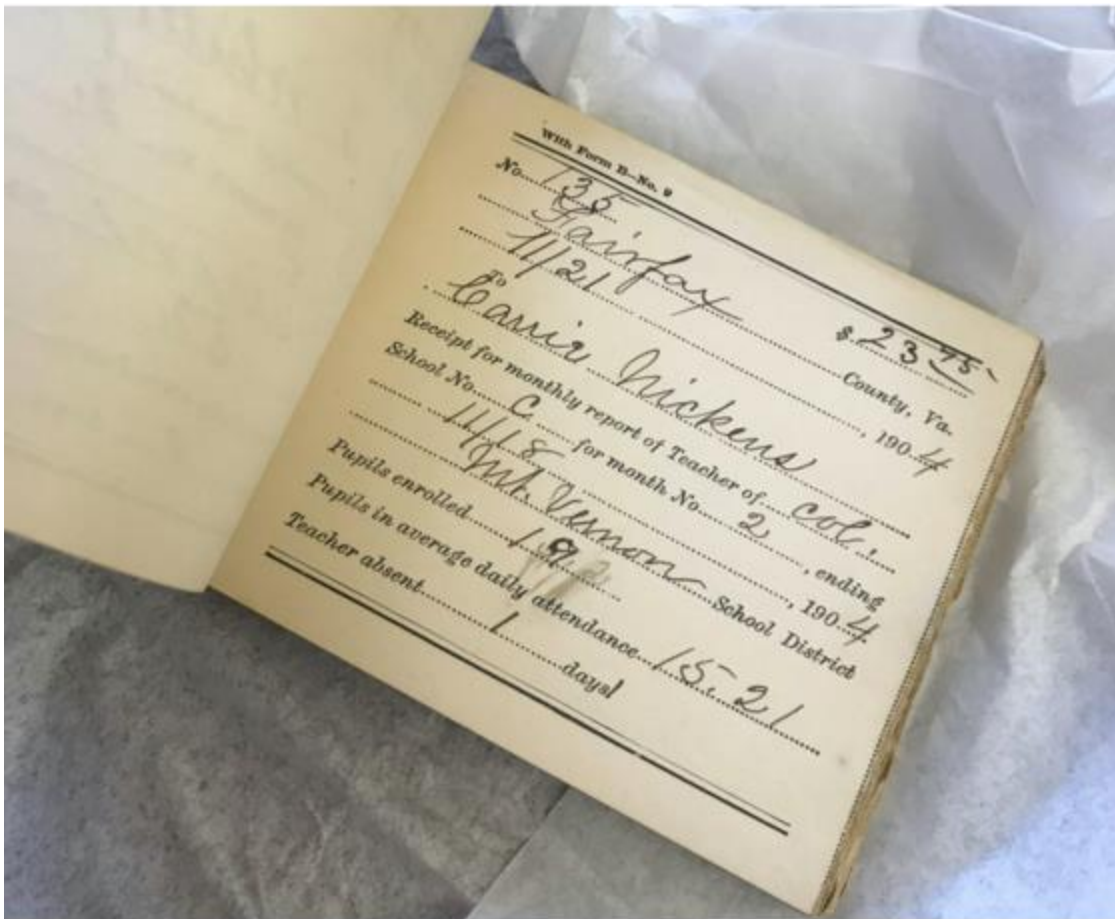 With Form B—No. 9
No. 135 $ 23 75
Fairfax County, Va.
11/21, 1904
To Carrie Nickens
Receipt for monthly report of Teacher of col.
School No. C for month No. 2, ending
11/18, 1904
Mt. Vernon School District
Pupils enrolled 19
Pupils in average daily attendance 15.21
Teacher absent 1 days